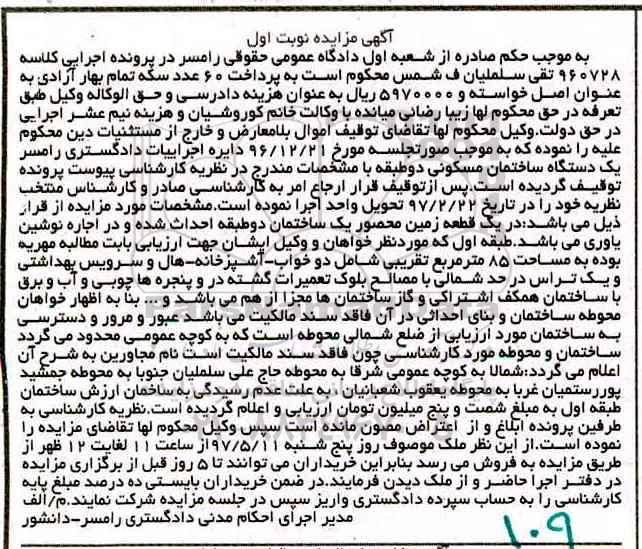 آگهی مزایده نوبت اول
به موجب حکم صادره از شعبه اول دادگاه عمومی حقوقی رامسر در پرونده اجرایی کلاسه
۹۶۰۷۲۸ تقی سلملیان ف شمس محکوم است به پرداخت ۶۰ عدد سکه تمام بهار آزادی به
عنوان اصل خواسته و ۵۹۷۰۰۰۰ ریال به عنوان هزینه دادرسی و حق الوکاله وکیل طبق
تعرفه در حق محکوم لها زیبا رضائی میانده با وکالت خانم کوروشیان و هزینه نیم عشر اجرایی
در حق دولت.وکیل محکوم لها تقاضای توقیف اموال بلامعارض و خارج از مستثنیات دین محکوم
علیه را نموده که به موجب صورتجلسه مورخ ۹۶/۱۲/۲۱ دایره اجراییات دادگستری رامسر
یک دستگاه ساختمان مسکونی دوطبقه با مشخصات مندرج در نظریه کارشناسی پیوست پرونده
توقیف گردیده است.پس ازتوقیف قرار ارجاع امر به کارشناسی صادر و کارشناس منتخب
نظریه خود را در تاریخ ۹۷/۲/۲۲ تحویل واحد اجرا نموده است.مشخصات مورد مزایده از قرار
ذیل می باشد:در یک قطعه زمین محصور یک ساختمان دوطبقه احداث شده و در اجاره نوشین
یاوری می باشد.طبقه اول که موردنظر خواهان و وکیل ایشان جهت ارزیابی بابت مطالبه مهریه
بوده به مساحت ۸۵ مترمربع تقریبی شامل دو خواب-آشپزخانه-هال و سرویس بهداشتی
و یک تراس در حد شمالی با مصالح بلوک تعمیرات گشته در و پنجره ها چوبی و آب و برق
با ساختمان همکف اشتراکی و گاز ساختمان ها مجزا از هم می باشد و ... بنا به اظهار خواهان
محوطه ساختمان و بنای احداثی در آن فاقد سند مالکیت می باشد. عبور و مرور و دسترسی
به ساختمان مورد ارزیابی از ضلع شمالی محوطه است که به کوچه عمومی محدود می گردد
ساختمان و محوطه مورد کارشناسی چون فاقد سند مالکیت است نام مجاورین به شرح آن
اعلام می گردد:شمالا به کوچه عمومی شرقا به محوطه حاج علی سلملیان جنوبا به محوطه جمشید
پوررستمیان غربا به محوطه یعقوب شعبانیان به علت عدم رسیدگی به ساختمان ارزش ساختمان
طبقه اول به مبلغ شصت و پنج میلیون تومان ارزیابی و اعلام گردیده است.نظریه کارشناسی به
طرفین پرونده ابلاغ و از اعتراض مصون مانده است سپس وکیل محکوم لها تقاضای مزایده را
نموده است.از این نظر ملک موصوف روز پنج شنبه ۹۷/۵/۱۱از ساعت ۱۱ لغایت ۱۲ ظهر از
طریق مزایده به فروش می رسد بنابراین خریداران می توانند تا ۵ روز قبل از برگزاری مزایده
در دفتر اجرا حاضر و از ملک دیدن فرمایند.در ضمن خریداران بایستی ده درصد مبلغ پایه
کارشناسی را به حساب سپرده دادگستری واریز سپس در جلسه مزایده شرکت نمایند.م/الف
مدیر اجرای احکام مدنی دادگستری رامسر-دانشور
۱۰۹